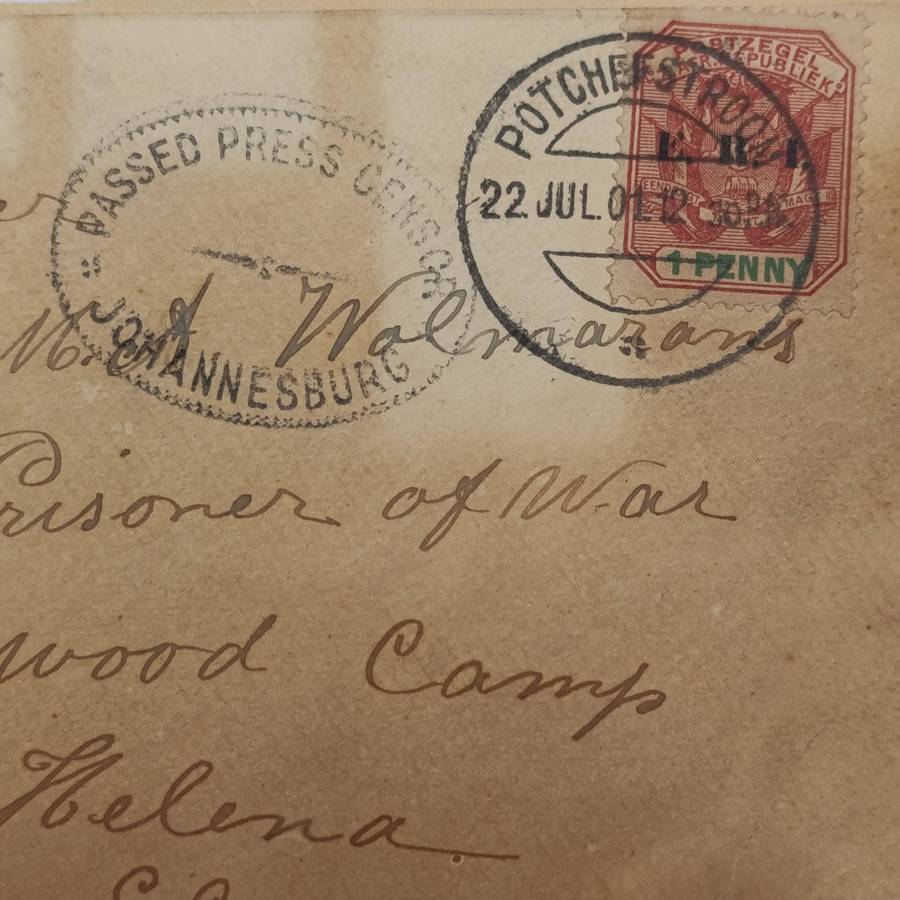 PASSED PRESS CENSOR
JOHANNESBURG
POTCHEFSTROOM
22 JUL. 01. 12 30 PM
POSTZEGEL
Z. AFR. REPUBLIEK
E. R. I.
EENDRAGT MAAKT MAGT
1 PENNY
er
A Wolmarans
Prisoner of War
wood Camp
Helena